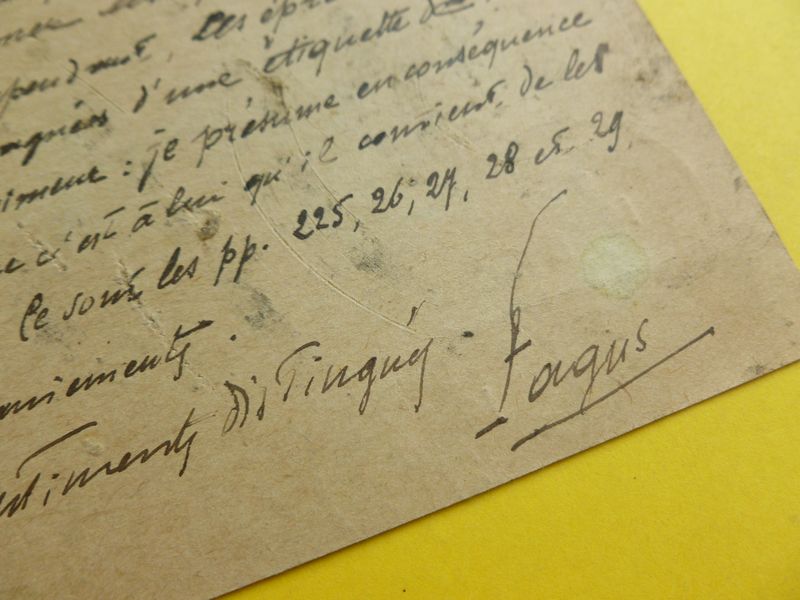 les
pendant, les épr
agnées d'une étiquette de
iment : je présume en conséquence
e c'est à lui qu'il convient de les
Ce sont les pp. 225, 26, 27, 28 et 29
niements.
ntiments distingués.
Fagus